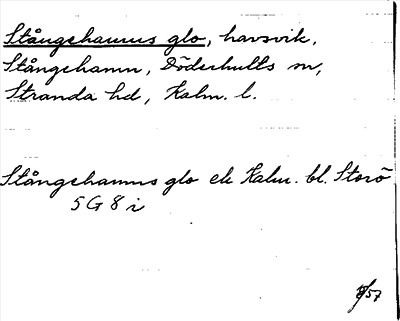 Stångehamns glo, havsvik,
Stångehamn, Döderhults sn,
Stranda hd, Kalm. l.
Stångehamns glo ek Kalm. bl. Storö
5 G 8 i